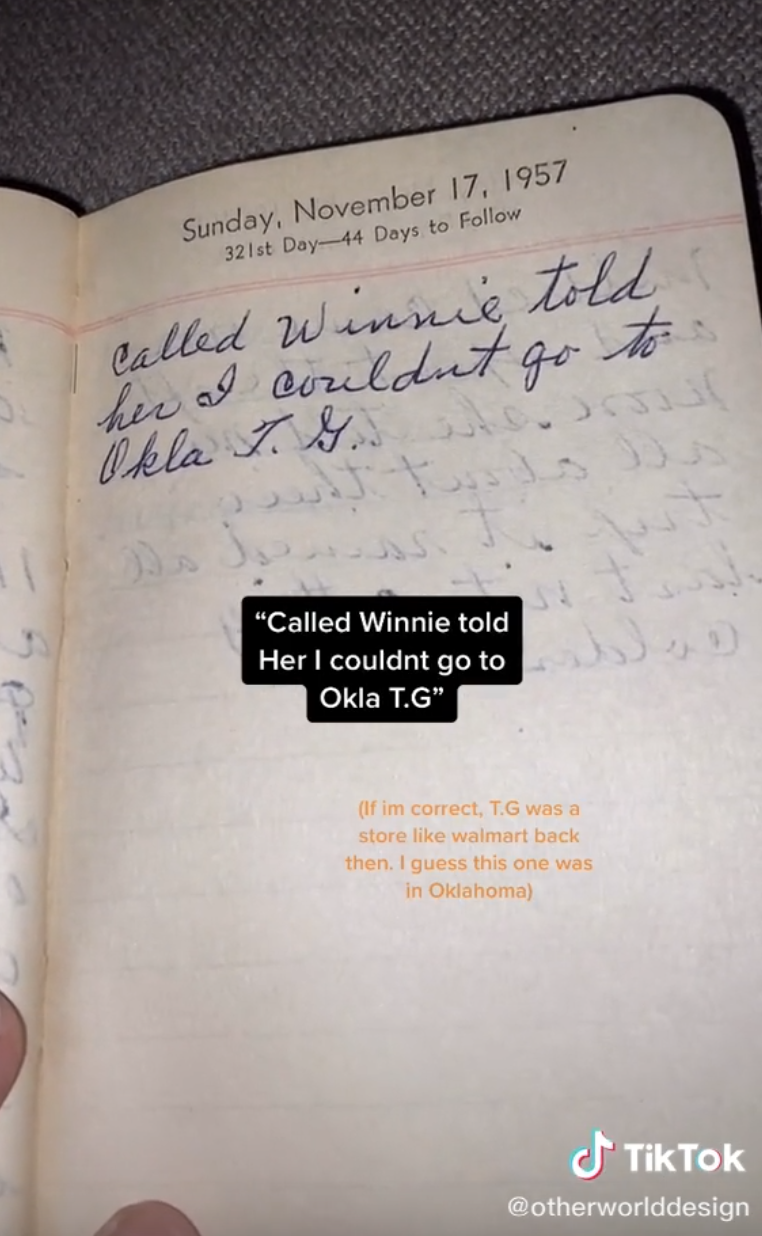 Sunday, November 17, 1957
321st Day—44 Days to Follow
called Winnie told
her I couldnt go to
Okla T. G.
"Called Winnie told
Her I couldnt go to
Okla T.G"
(If im correct, T.G was a
store like walmart back
then. I guess this one was
in Oklahoma)
TikTok
@otherworlddesign